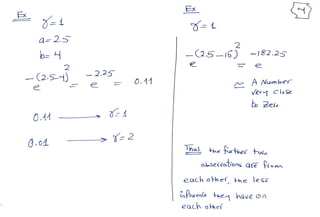 Ex
γ=1
a=2.5
b=4
e^-(2.5-4)^2 = e^-2.25 = 0.11
0.11 → γ=1
0.01 → γ=2
4
Ex
γ=1
e^-(2.5-15)^2 = e^-182.25
≃ A Number
very close
to Zero
That the further two
observations are from
each other, the less
influence they have on
each other